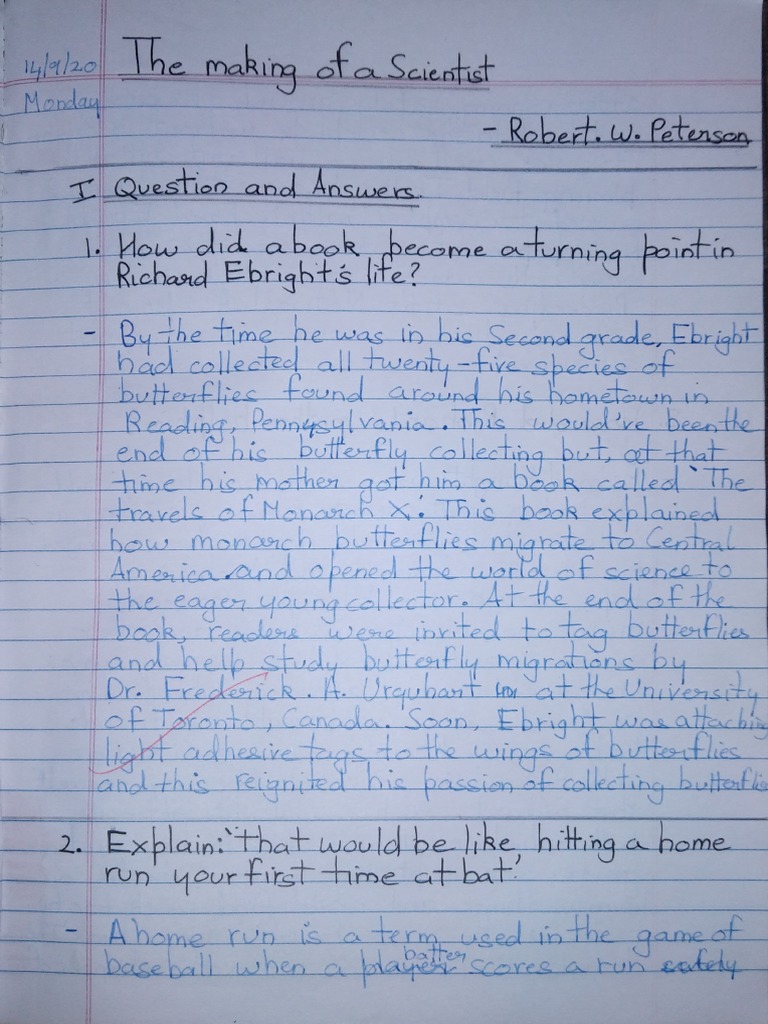 14/9/20
Monday
The making of a Scientist
- Robert. W. Peterson
I Question and Answers.
1. How did a book become a turning point in
Richard Ebright's life?
- By the time he was in his Second grade, Ebright
had collected all twenty-five species of
butterflies found around his hometown in
Reading, Pennysylvania. This would've been the
end of his butterfly collecting but, at that
time his mother got him a book called 'The
travels of Monarch X'. This book explained
how monarch butterflies migrate to Central
America and opened the world of science to
the eager young collector. At the end of the
book, readers were invited to tag butterflies
and help study butterfly migrations by
Dr. Frederick. A. Urquhart at the University
of Toronto, Canada. Soon, Ebright was attaching
light adhesive tags to the wings of butterflies
and this reignited his passion of collecting butterflies
2. Explain: 'that would be like hitting a home
run your first time at bat.'
- A home run is a term used in the game of
baseball when a batter scores a run safely